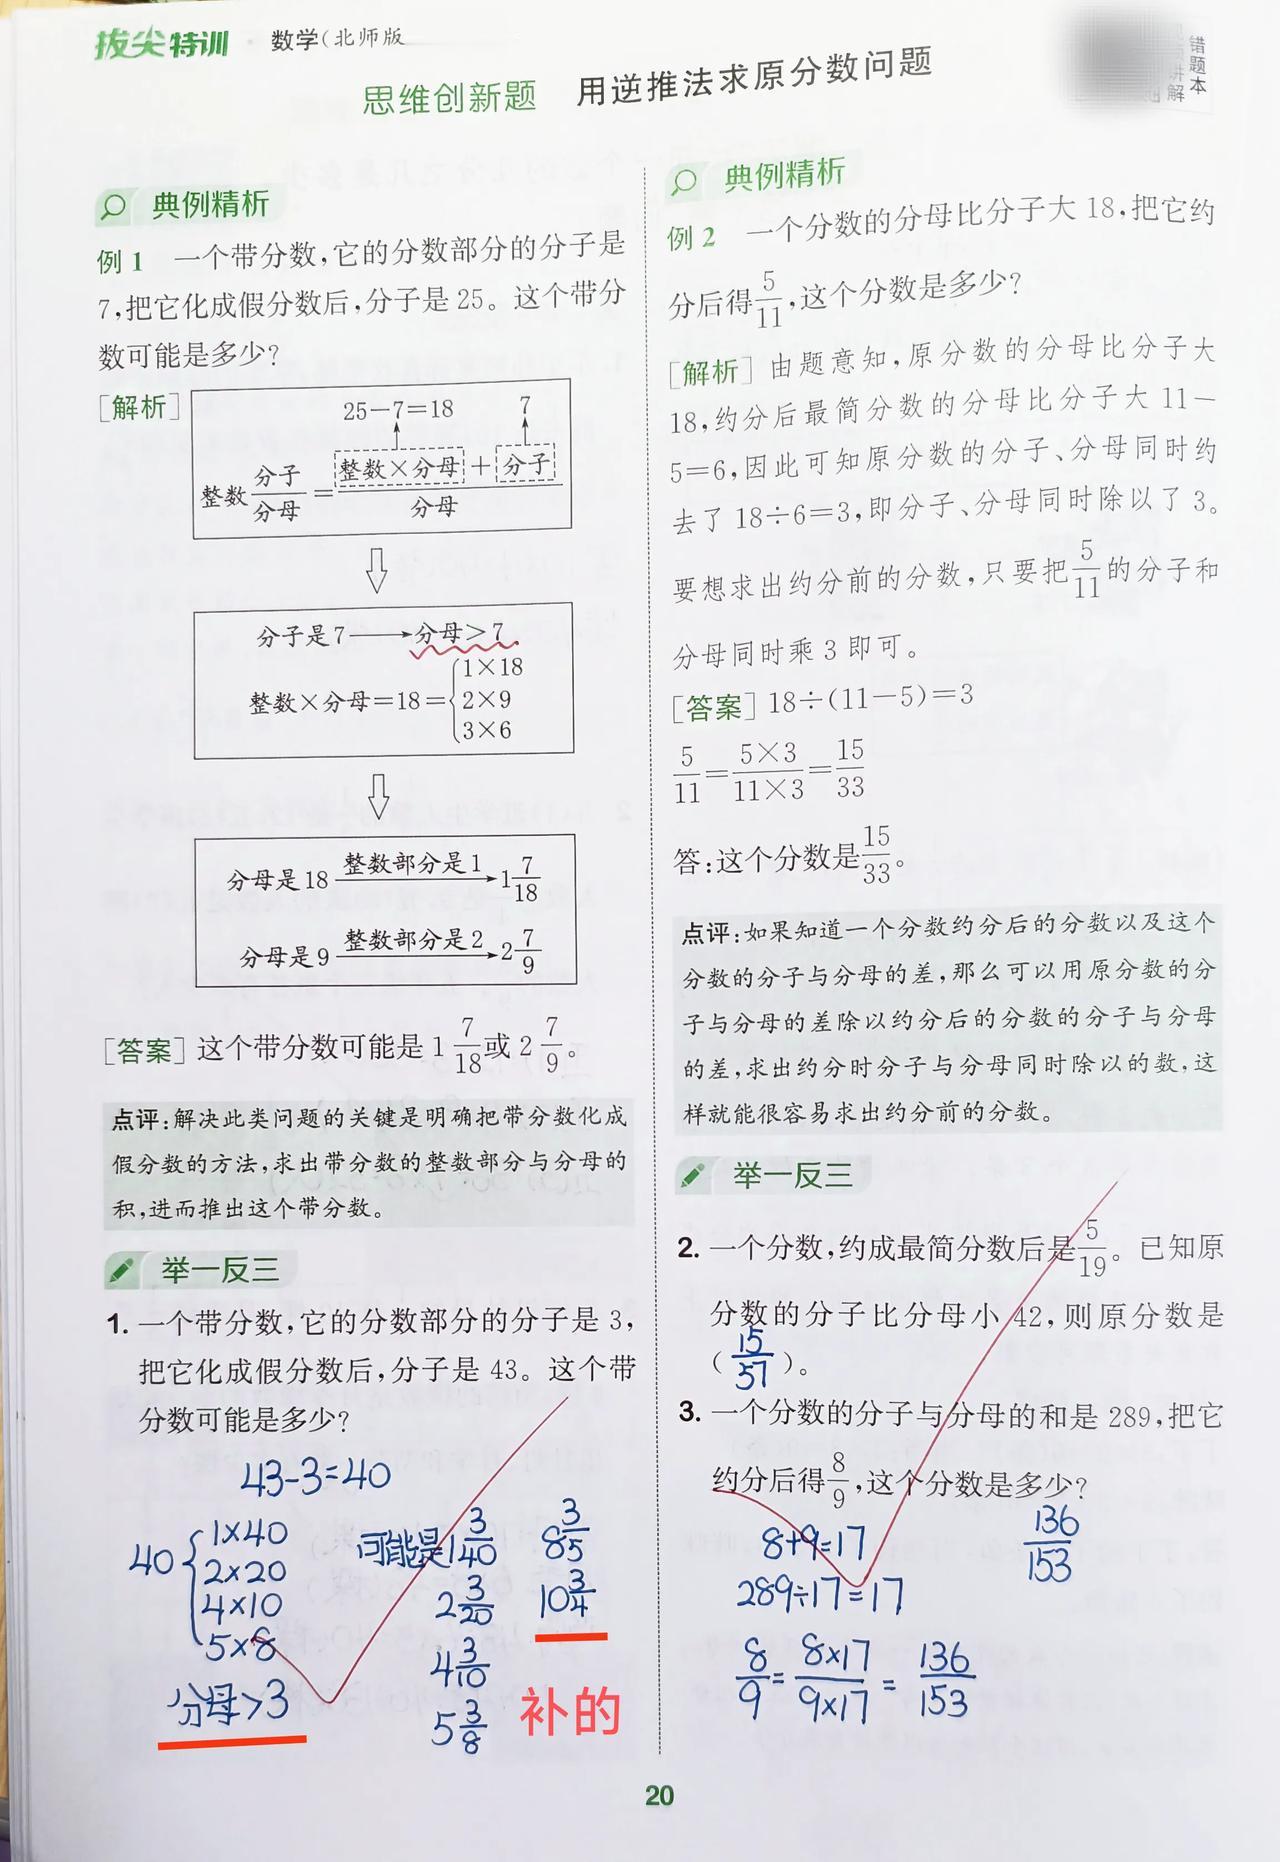 拔尖特训 · 数学(北师版
错题本
讲解
思维创新题 用逆推法求原分数问题
典例精析
例1 一个带分数,它的分数部分的分子是
7,把它化成假分数后,分子是25。这个带分
数可能是多少?
[解析]
25-7=18 7
整数 分子/分母 = (整数×分母 + 分子)/分母
分子是7→分母>7
整数×分母=18={1×18
2×9
3×6
分母是18 整数部分是1→1 7/18
分母是9 整数部分是2→2 7/9
[答案]这个带分数可能是1 7/18或2 7/9。
点评:解决此类问题的关键是明确把带分数化成
假分数的方法,求出带分数的整数部分与分母的
积,进而推出这个带分数。
举一反三
1. 一个带分数,它的分数部分的分子是3,
把它化成假分数后,分子是43。这个带
分数可能是多少?
43-3=40
40{1×40
2×20
4×10
5×8
分母>3
可能是1 3/40
2 3/20
4 3/10
5 3/8
8 3/5
10 3/4
补的
典例精析
例2 一个分数的分母比分子大18,把它约
分后得5/11,这个分数是多少?
[解析]由题意知,原分数的分母比分子大
18,约分后最简分数的分母比分子大11-
5=6,因此可知原分数的分子、分母同时约
去了18÷6=3,即分子、分母同时除以了3。
要想求出约分前的分数,只要把5/11的分子和
分母同时乘3即可。
[答案]18÷(11-5)=3
5/11=5×3/11×3=15/33
答:这个分数是15/33。
点评:如果知道一个分数约分后的分数以及这个
分数的分子与分母的差,那么可以用原分数的分
子与分母的差除以约分后的分数的分子与分母
的差,求出约分时分子与分母同时除以的数,这
样就能很容易求出约分前的分数。
举一反三
2. 一个分数,约成最简分数后是5/19。已知原
分数的分子比分母小42,则原分数是
(15/57)。
3. 一个分数的分子与分母的和是289,把它
约分后得8/9,这个分数是多少?
8+9=17
289÷17=17
8/9=8×17/9×17=136/153
136/153
20